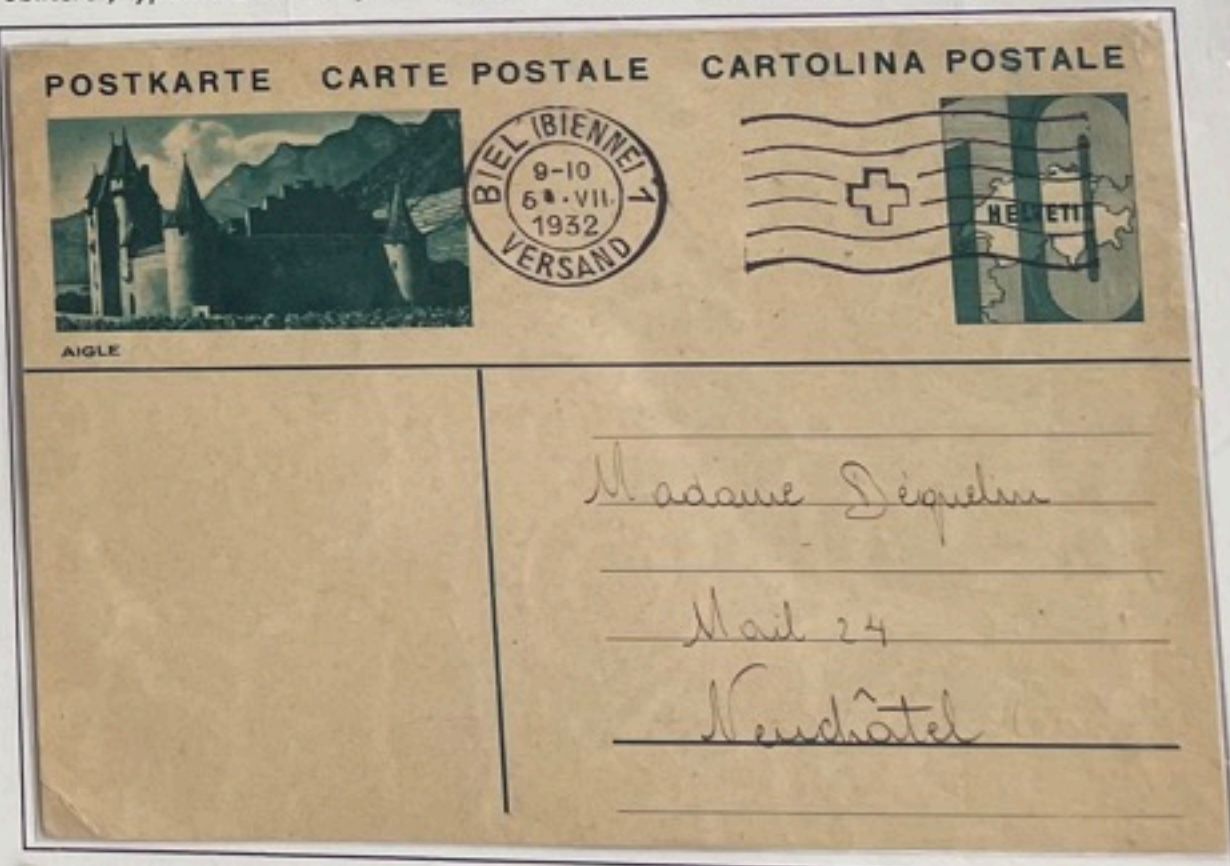 POSTKARTE CARTE POSTALE CARTOLINA POSTALE
BIEL (BIENNE) 1
9-10
VII.
1932
VERSAND
10
HELVETIA
AIGLE
Madame Déquelin
Mail 24
Neuchâtel